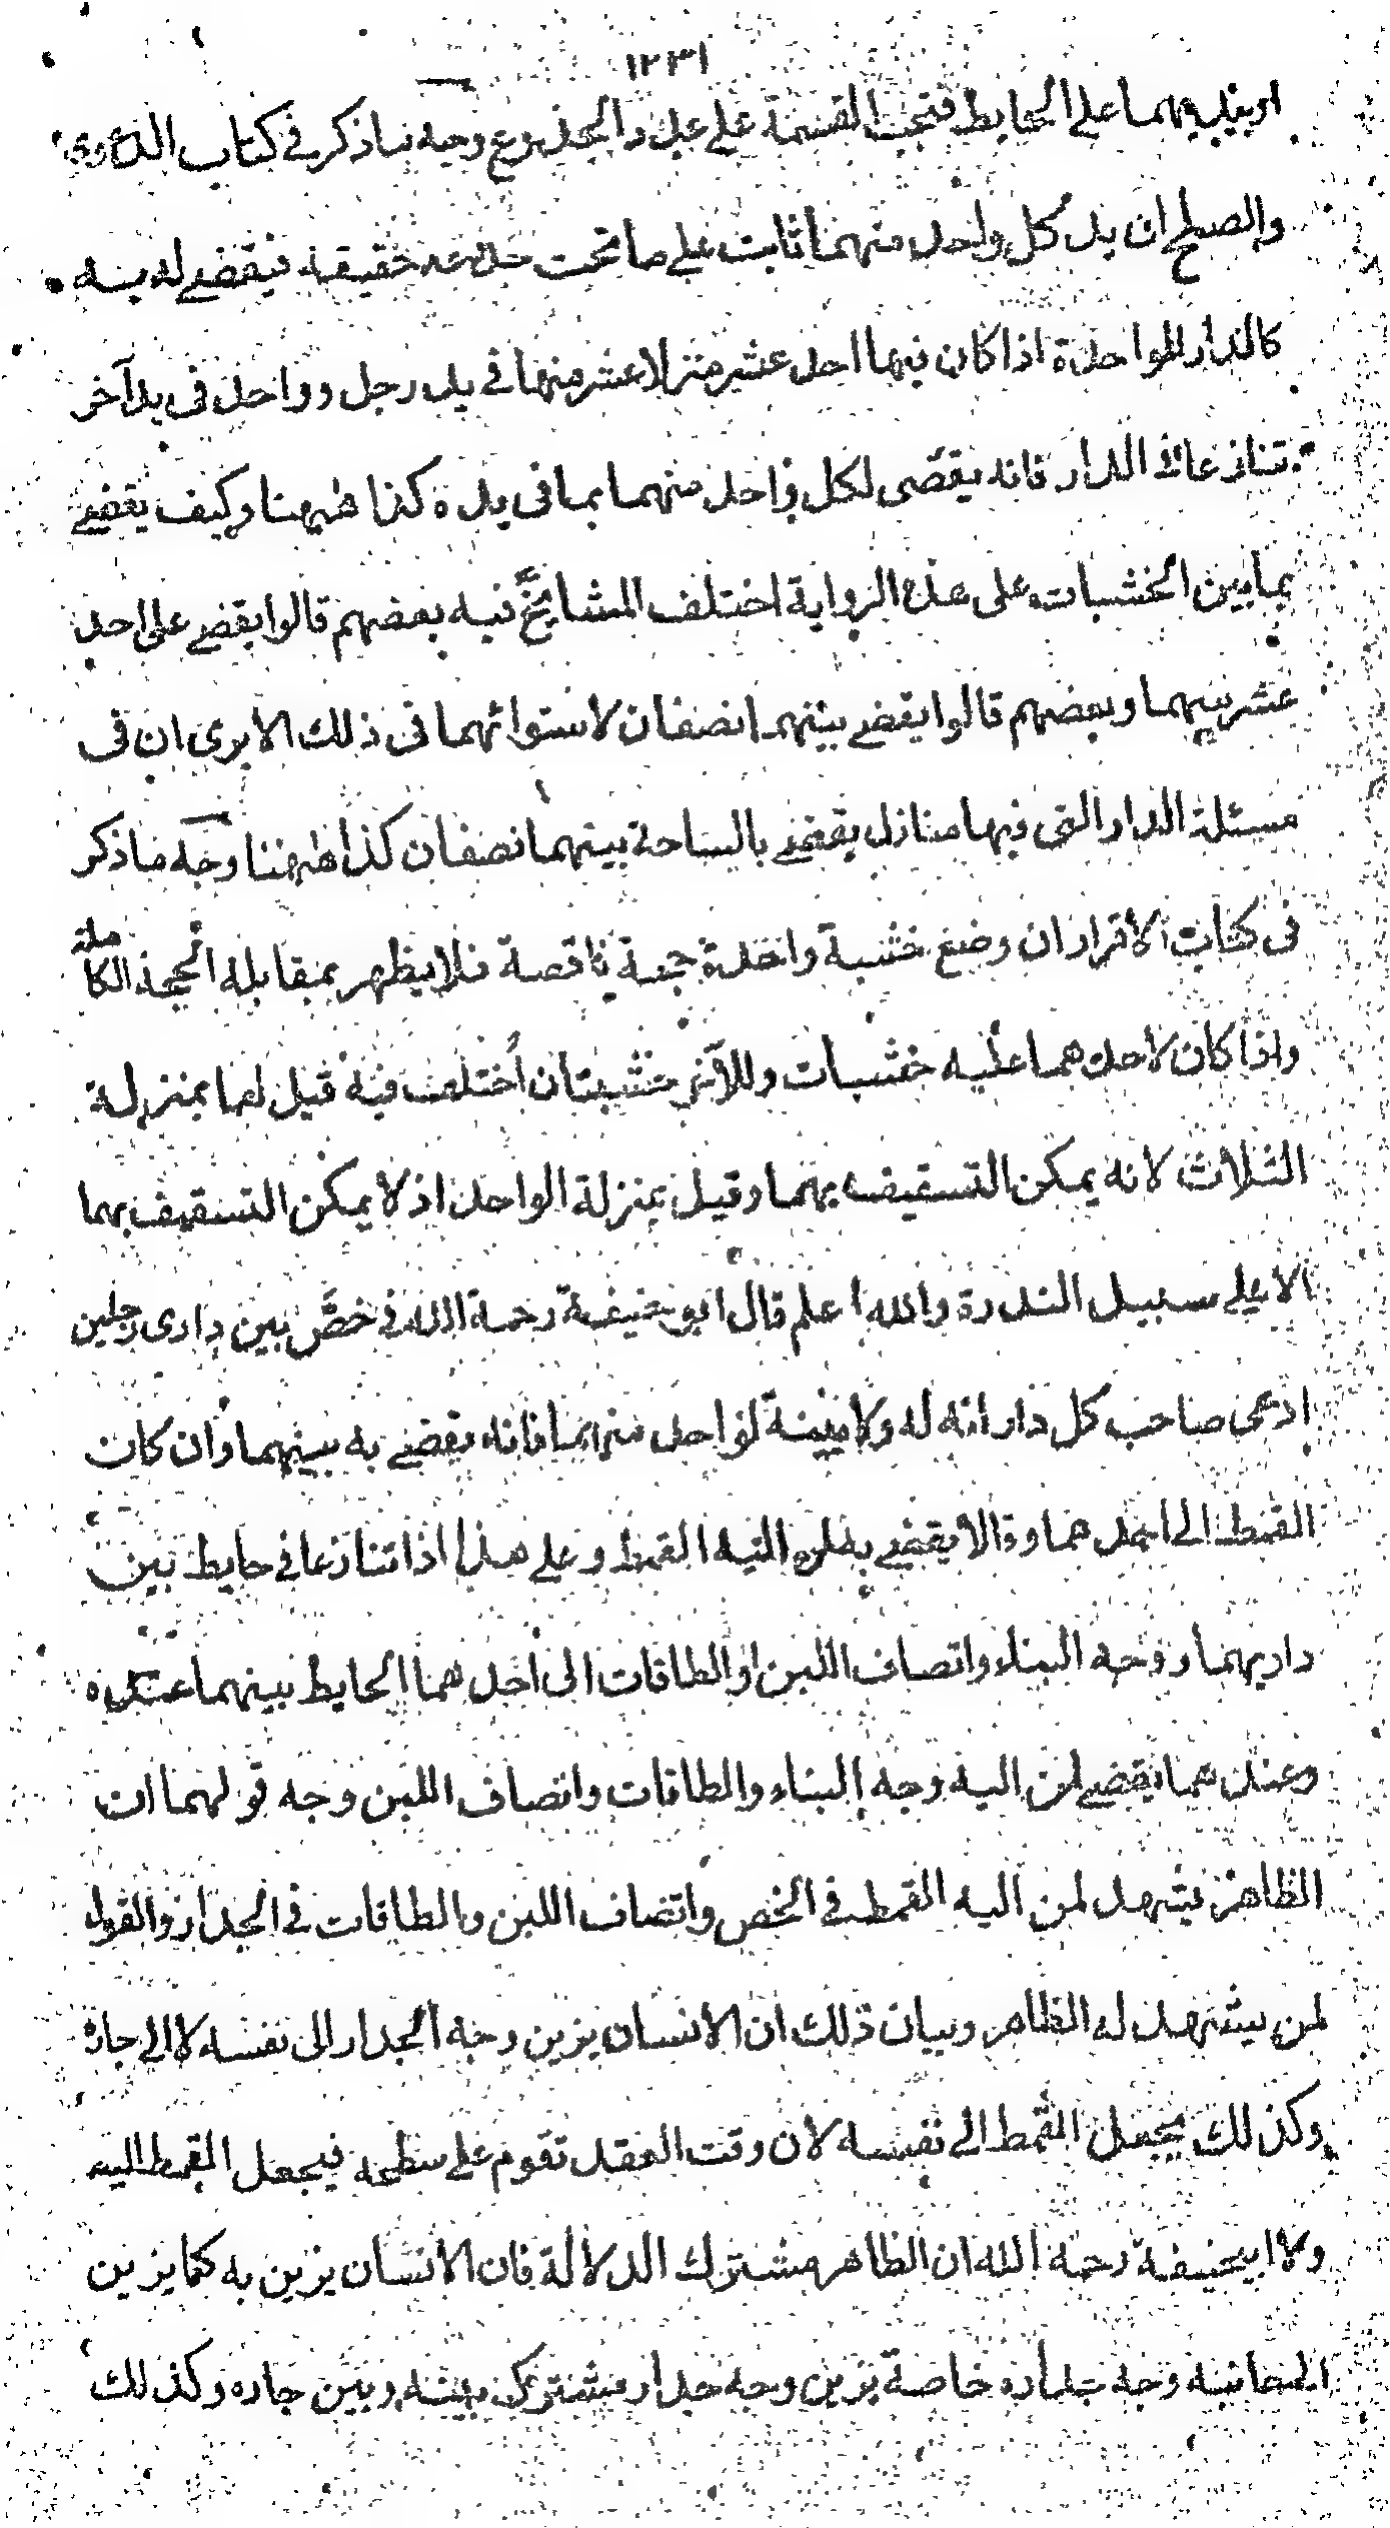 ١٢٣١
او بيديهما على الحايط فتجب القسمة على عدد الجذوع وجه ما ذكر في كتاب الدعوى
والصلح ان يد كل واحد منهما ثابت على ما تحت حقيقة فيقضى له به
كالدار الواحدة اذا كان فيها احد عشر منزلا عشر منها في يد رجل وواحد في يد آخر
تنازعا في الدار فانه يقضى لكل واحد منهما بما في يده كذا ههنا وكيف يقضى
بما بين الخشبات على هذه الرواية اختلف المشايخ فيه بعضهم قالوا يقضى على احد
عشر بينهما وبعضهم قالوا يقضى بينهما نصفان لاستوائهما في ذلك الا يرى ان في
مسئلة الدار التى فيها منازل يقضى بالساحة بينهما نصفان كذا ههنا وجه ما ذكر
فى كتاب الاقرار ان وضع خشبة واحدة حجة ناقصة فلا يظهر بمقابلة الحجة الكاملة
واذا كان لاحدهما عليه خشبات وللآخر خشبتان اختلف فيه قيل لهما بمنزلة
الثلاث لانه يمكن التسقيف بهما وقيل بمنزلة الواحد اذ لا يمكن التسقيف بهما
الا على سبيل الندرة والله اعلم قال ابو حنيفة رحمة الله في خص بين دارى رجلين
ادعى صاحب كل دار انه له ولا بينة لواحد منهما فانه يقضى به بينهما وان كان
القمط الى احدهما وقالا يقضى به لمن اليه القمط وعلى هذا اذا تنازعا في حايط بين
داريهما ووجه البناء واتصاف اللبن او الطاقات الى احدهما الحايط بينهما عنده
وعندهما يقضى لمن اليه وجه البناء والطاقات واتصاف اللبن وجه قولهما ان
الظاهر يشهد لمن اليه القمط في الخص واتصاف اللبن والطاقات في الجدار والقول
لمن يشهد له الظاهر وبيان ذلك ان الانسان يزين وجه الجدار الى نفسه لا الى جاره
وكذلك يجعل القمط الى نفسه لان وقت العقد تقوم على سطحه فيجعل القمط اليه
ولابي حنيفة رحمة الله ان الظاهر مشترك الدلالة فان الانسان يزين به كما يزين
وجه جداره خاصة يزين وجه جدار مشترك بينه وبين جاره وكذلك